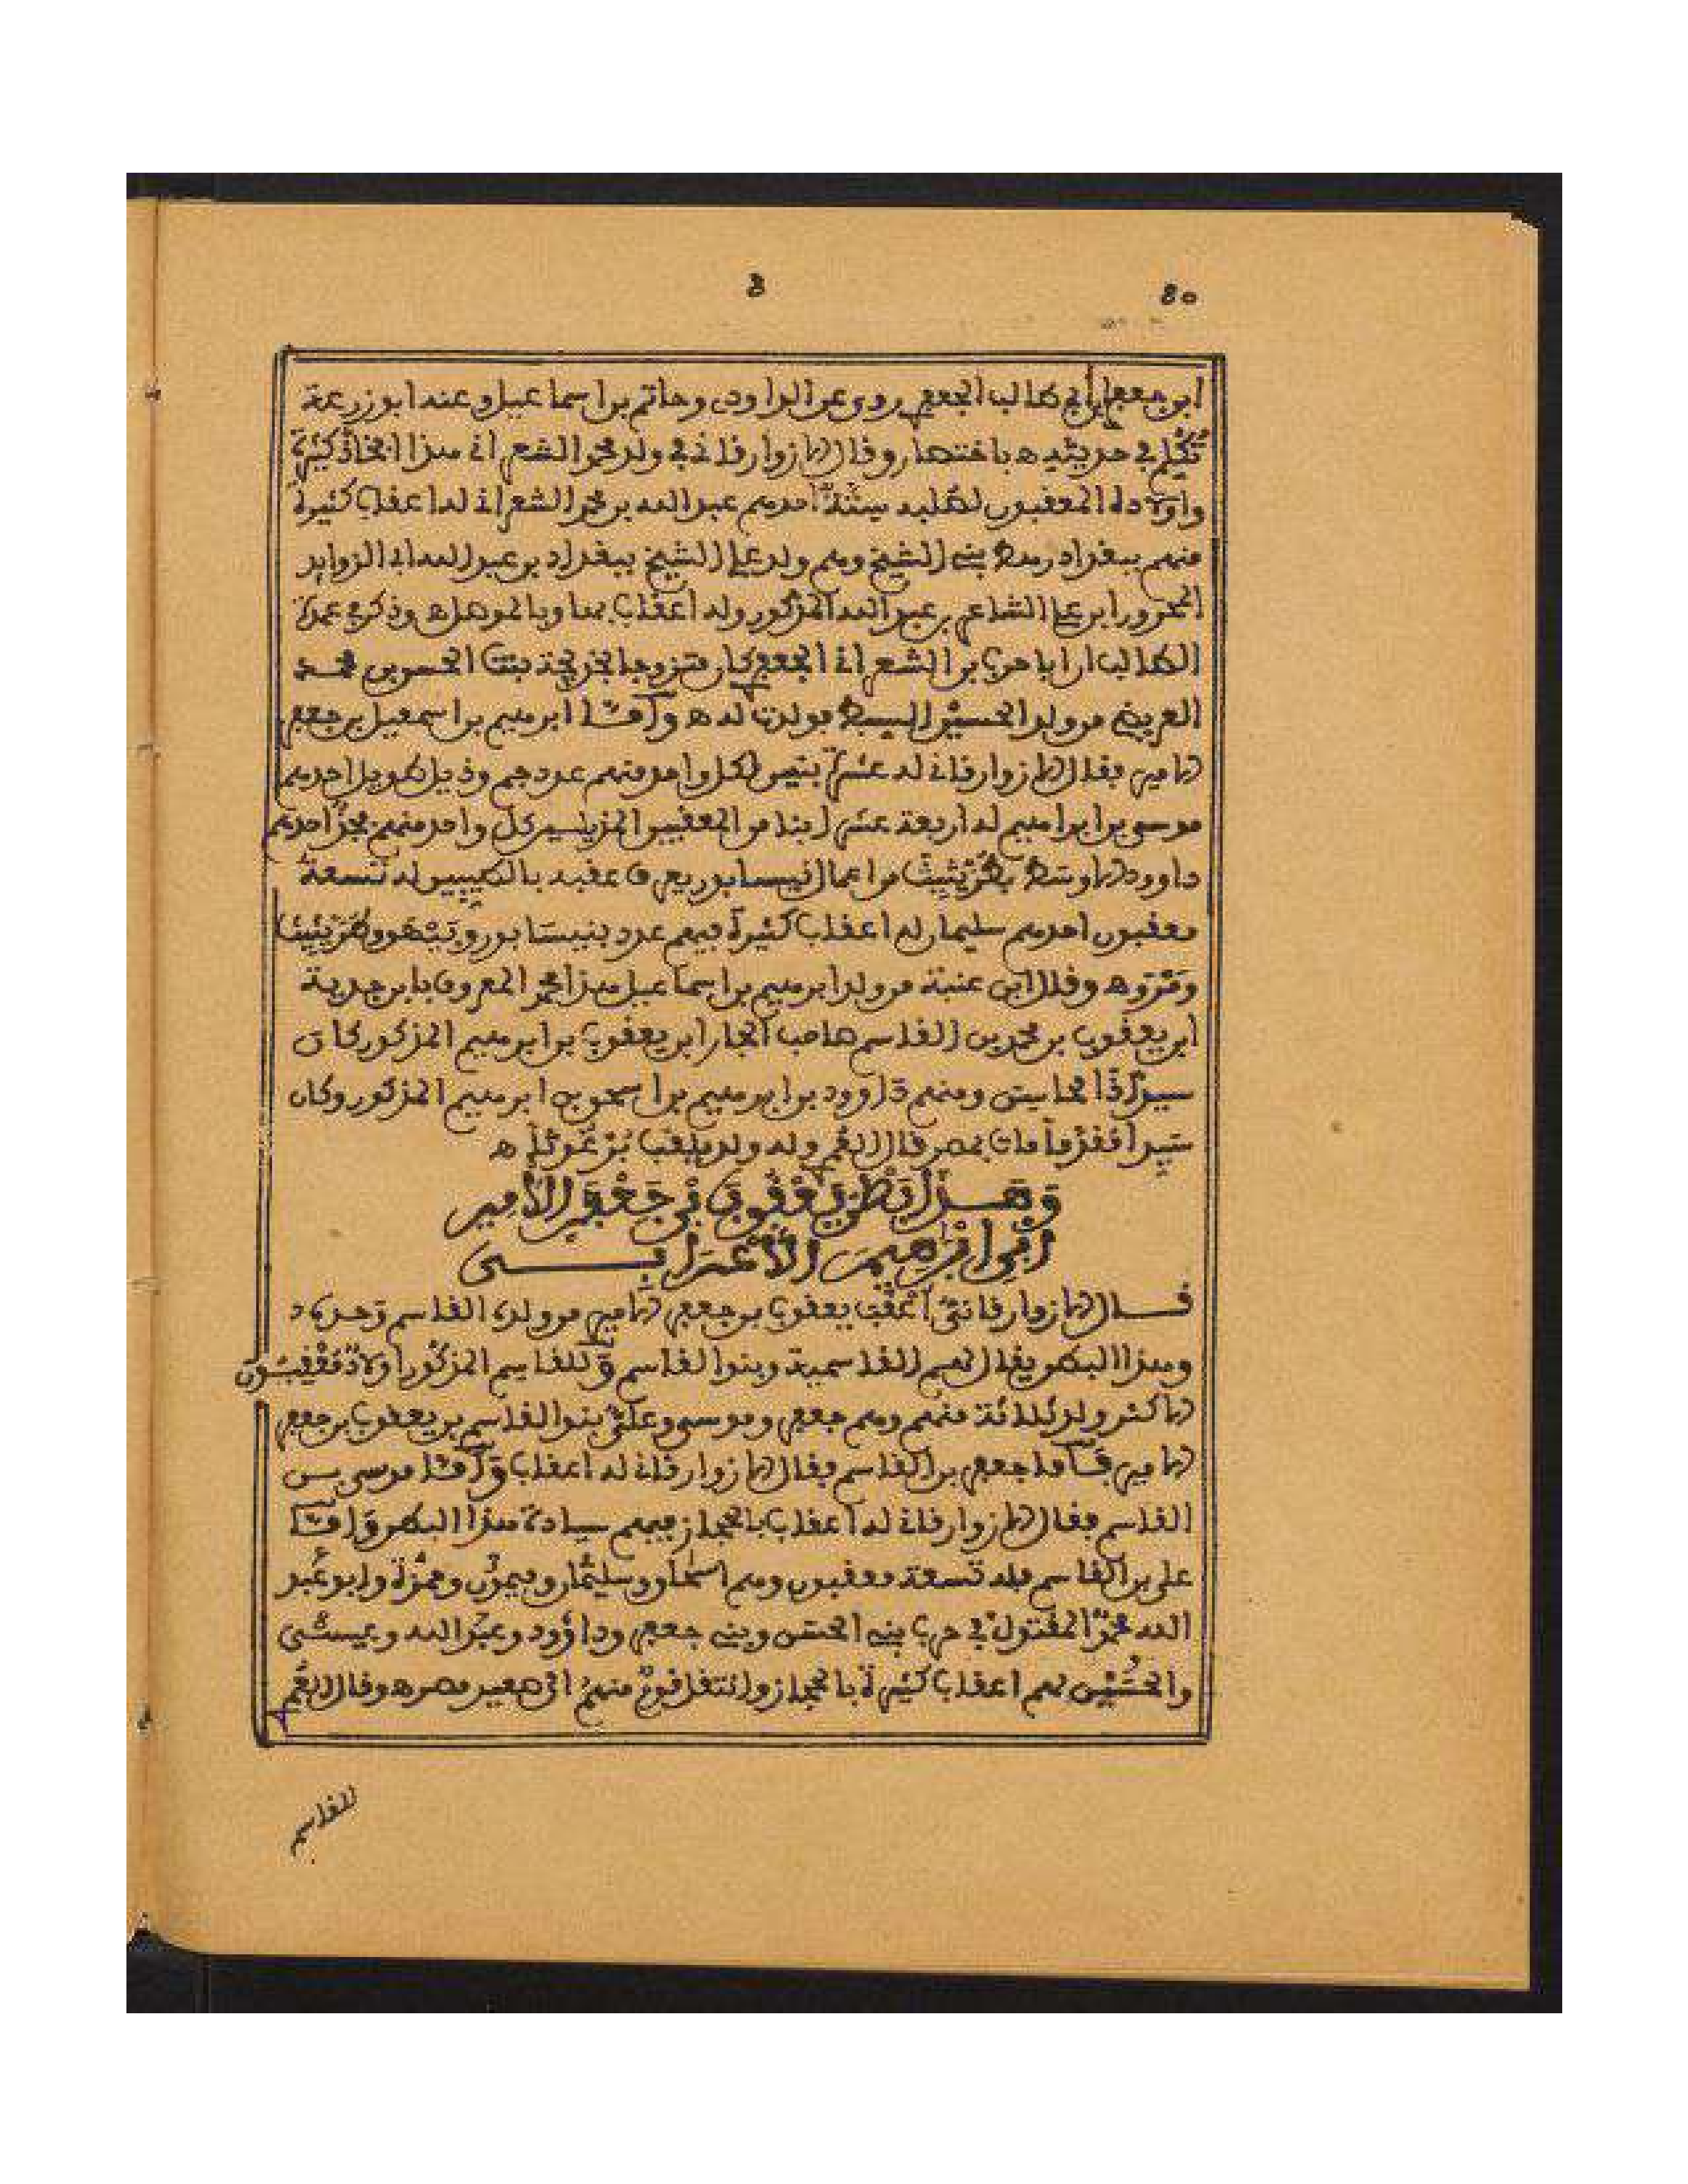 80
3
ابن جعفر بن أبي طالب الجعفري روى عن الدراوردي وحاتم بن اسماعيل وعنه ابو زرعة
تكلم في حديثه ه باختصار وقال الازوارقاني في ولد محمد الشعراني هذا افخاذ كثيرة
واولاده المعقبون لصلبه ستة احدهم عبد الله بن محمد الشعراني له اعقاب كثيرة
منهم ببغداد رهط بني الشيخ وهم ولد علي الشيخ ببغداد بن عبد الله ابي الزوايد
المحرور ابن علي الشاعر بن عبد الله المذكور وله اعقاب بها وبالموصل ه وذكر في عمدة
الطالب ان ابا حرب بن الشعراني الجعفري كان متزوجا بخديجة بنت الحسن بن محمد
العريضي من ولد الحسين السبط فولدت له ه وأمّا ابرهيم بن اسمعيل بن جعفر
الامير فقال الازوارقاني له عشرة بنين لكل واحد منهم عدد جم وذيل طويل احدهم
موسى بن ابراهيم له اربعة عشر ابنا من المعقبين المذيلين كل واحد منهم فخذ احدهم
داوود الاوسط بطُرَيْثِيث من اعمال نيسابور يعرف عقبه بالطيبين له تسعة
معقبون احدهم سليمان له اعقاب كثيرة فيهم عدد بنيسابور وبَيْهَق وطُرَيْثِيث
ومَرْو ه وقال ابن عنبة من ولد ابرهيم بن اسماعيل هذا محمد المعروف بابن جدية
ابن يعقوب بن محمد بن القاسم صاحب الجار ابن يعقوب بن ابرهيم المذكور كان
سيدًا ذا محاسن ومنهم داوود بن ابرهيم بن اسحق بن ابرهيم المذكور وكان
سيدا مقدّما مات بمصر قال العمري وله ولد يلقب بَرْغُوثا ه
وَهَذَا بَطْنُ يَعْقُوبَ بْنِ جَعْفَرِ الأَمِير
ابْنِ ابْرَاهِيمَ الأَعْرَابِي
قال الازوارقاني أعقب يعقوب بن جعفر الامير من ولده القاسم وحده
وهذا البطن يقال لهم القاسمية وبنوا القاسم وللقاسم المذكور اولاد مُعْقِبُون
الاكثر ولد ثلاثة منهم وهم جعفر وموسى وعليّ بنوا القاسم بن يعقوب بن جعفر
الامير فأما جعفر بن القاسم فقال الازوارقاني له اعقاب وأمّا موسى بن
القاسم فقال الازوارقاني له اعقاب بالحجاز فيهم سيادة هذا البطن وأمّا
علي بن القاسم فله تسعة معقبون وهم اسحاق وسليمان وميمون وحمزة وابو عبد
الله محمد المقتول في حرب بني الحسن وبني جعفر وداوود وعبد الله وعيسى
والحسين لهم اعقاب كثيرة بالحجاز وانتقل قوم منهم الى صعيد مصر ه وقال العمري
للقاسم